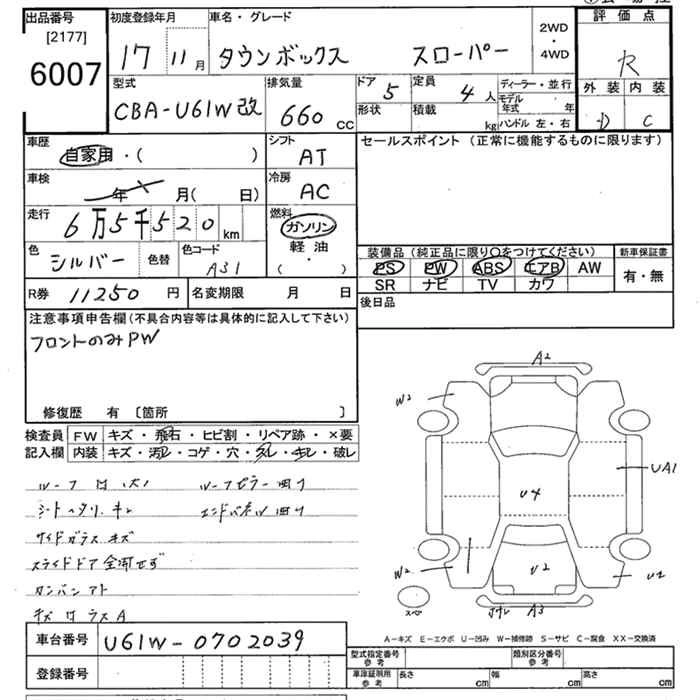 出品番号
[2177]
6007
初度登録年月
17 11月
車名・グレード
タウンボックス スローパー
2WD
・
4WD
評価点
R
外装 内装
D C
型式
CBA-U61W改
排気量
660 cc
ドア 5
定員 4人
形状
積載 kg
ディーラー・並行
モデル年式 年
ハンドル 左・右
車歴
自家用・( )
シフト
AT
セールスポイント (正常に機能するものに限ります)
車検
年 月( 日)
冷房
AC
走行
6万5千520km
燃料
ガソリン
軽油
・
( )
色
シルバー
色替
色コード
A31
装備品 (純正品に限り○をつけてください)
PS PW ABS エアB AW
SR ナビ TV カワ
新車保証書
有・無
R券 11250 円
名変期限 月 日
後日品
注意事項申告欄 (不具合内容等は具体的に記入して下さい)
フロントのみPW
修復歴 有 〔箇所 〕
検査員記入欄
FW キズ・飛石・ヒビ割・リペア跡・×要
内装 キズ・汚レ・コゲ・穴・スレ・キレ・破レ
ルーフピラー凹り
エンドパネル凹り
サイドガラス キズ
スライドドア全開せず
A2
W2
UA1
U4
W2
U2
U1
A3
スペア
A-キズ E-エクボ U-凹み W-補修跡 S-サビ C-腐食 XX-交換済
車台番号 U61W-0702039
登録番号
型式指定番号
参考
類別区分番号
参考
車庫証明用
参考
長さ cm 幅 cm 高さ cm